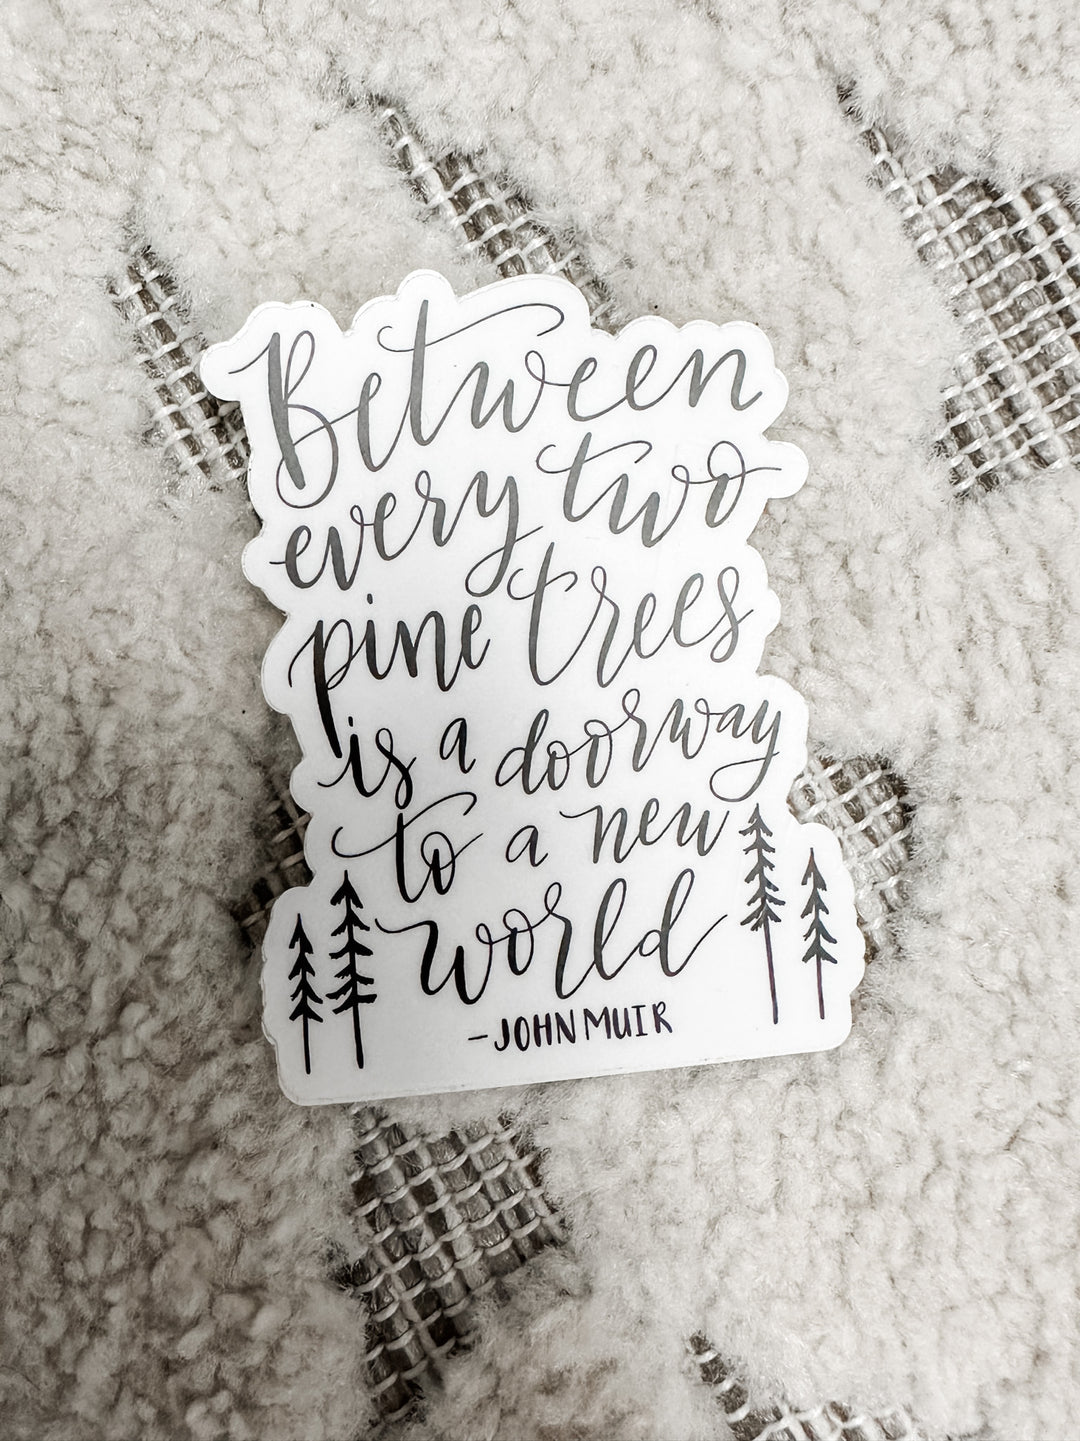 Between
every two
pine trees
is a doorway
to a new
world
-JOHN MUIR